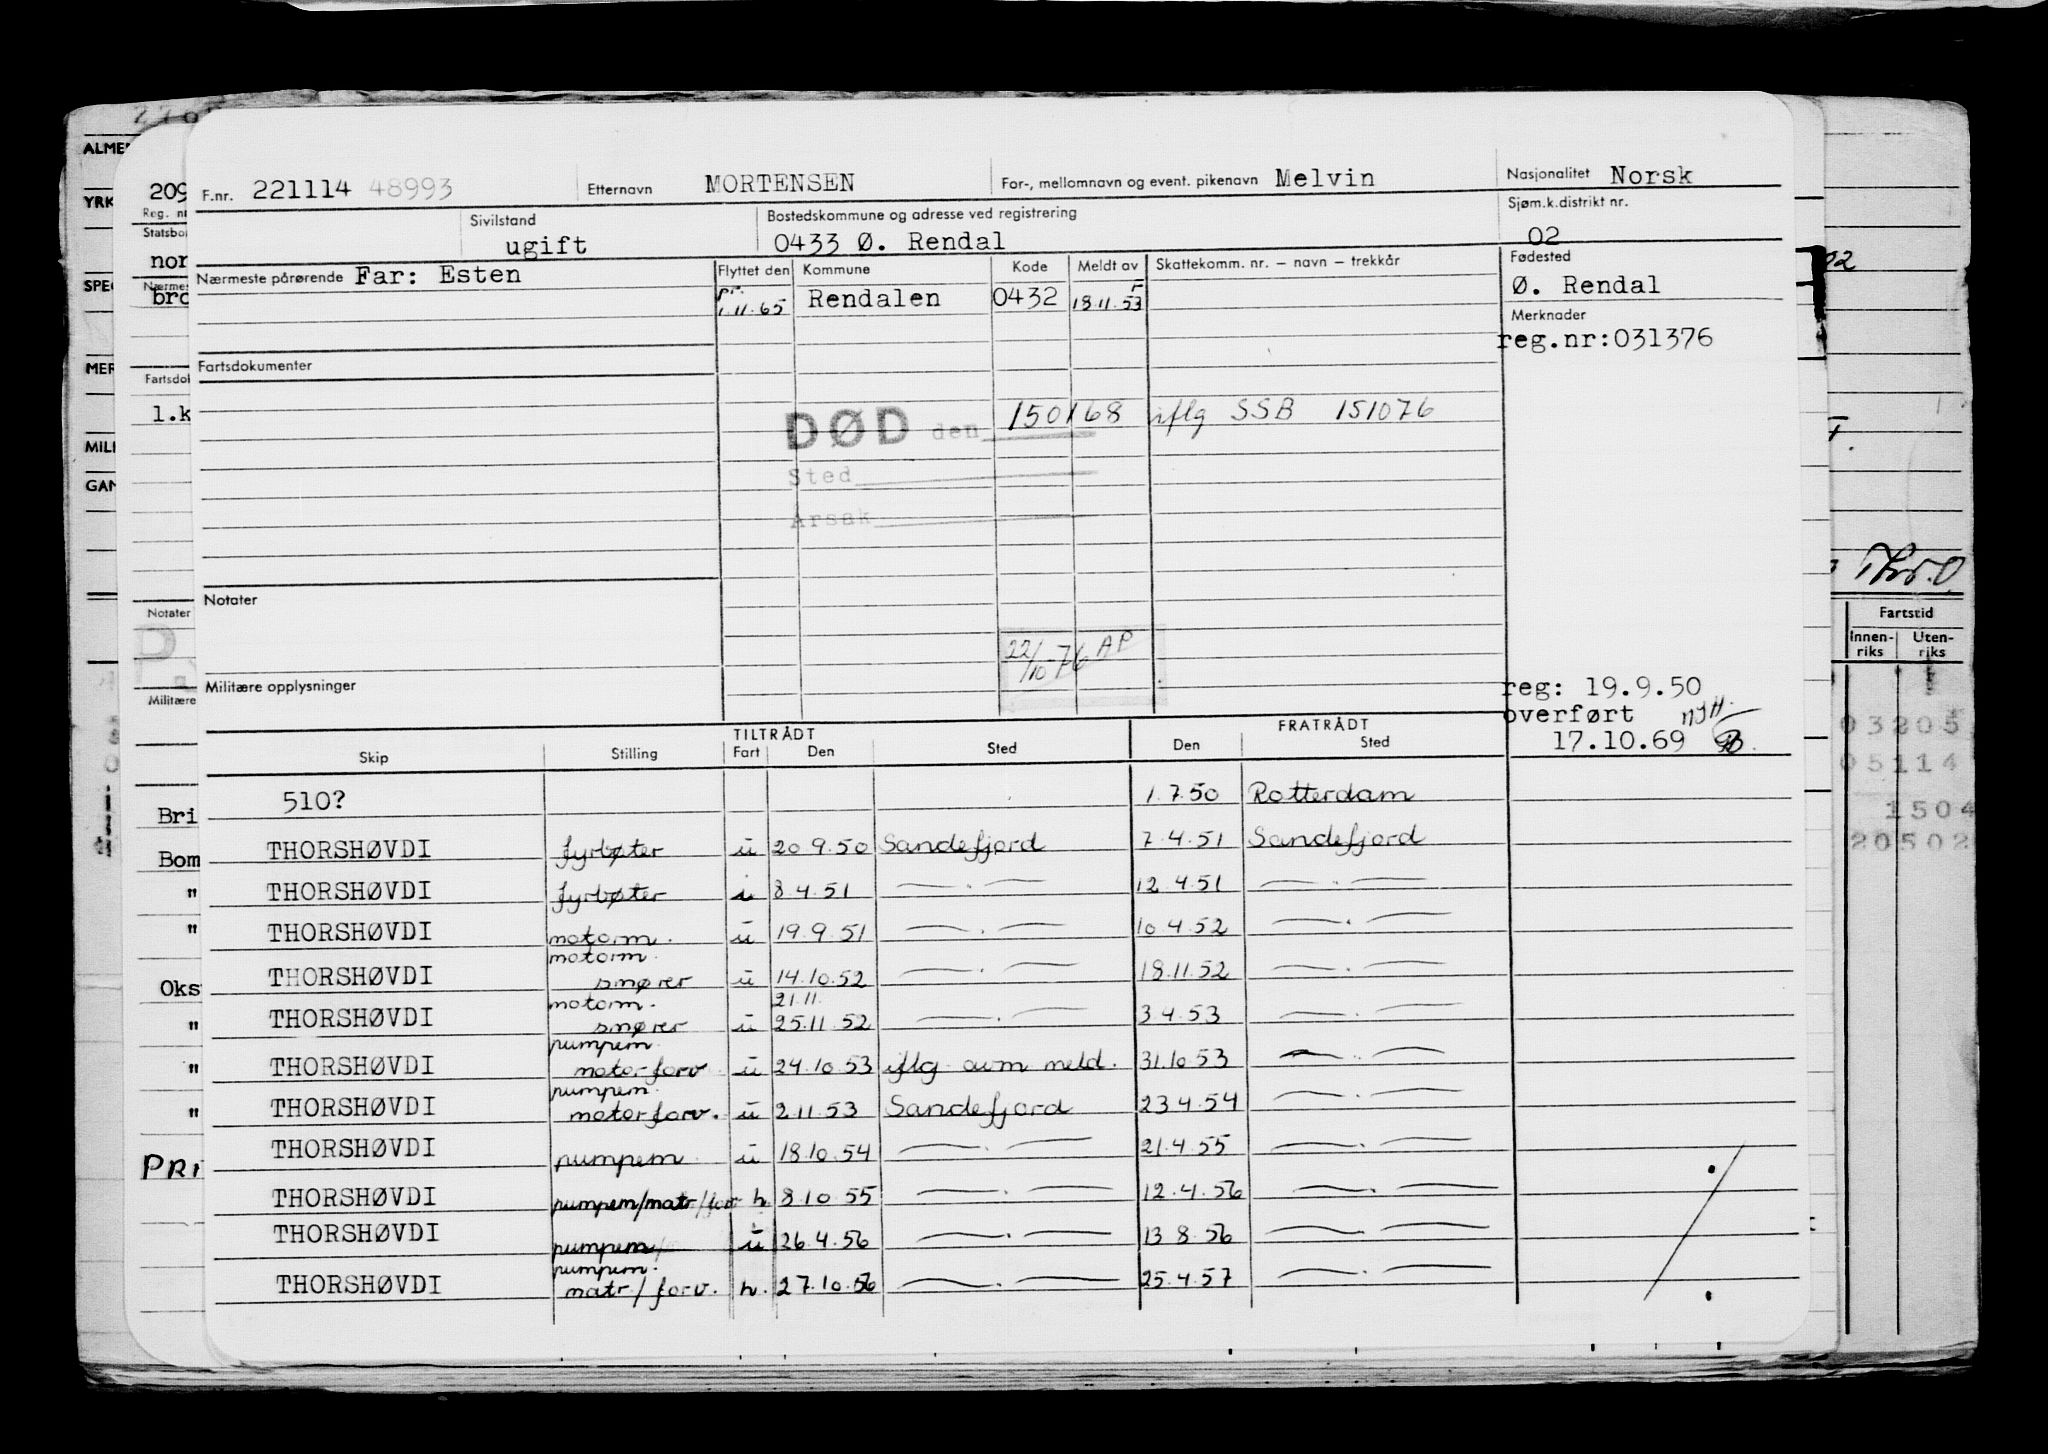 F.nr. 221114 48993 Etternavn MORTENSEN For-, mellomnavn og event. pikenavn Melvin Nasjonalitet Norsk
Sivilstand ugift Bostedskommune og adresse ved registrering 0433 Ø. Rendal Sjøm.k.distrikt nr. 02
Nærmeste pårørende Far: Esten Flyttet den Kommune Kode Meldt av Skattekomm. nr. – navn – trekkår Fødested
pr. 1.11.65 Rendalen 0432 18.11.53 Ø. Rendal
Merknader
reg.nr:031376
Fartsdokumenter
DØD den 150168 iflg SSB 151076
Sted
Årsak
Notater
22/10-76 AP
Militære opplysninger
reg: 19.9.50
overført
17.10.69
TILTRÅDT FRATRÅDT
Skip Stilling Fart Den Sted Den Sted
510? 1.7.50 Rotterdam
THORSHØVDI fyrbøter u 20 9.50 Sandefjord 7.4.51 Sandefjord
THORSHØVDI fyrbøter i 8.4.51 — . — 12.4.51 — . —
THORSHØVDI motorm. u 19.9.51 — . — 10.4.52 — . —
THORSHØVDI motorm. smører u 14.10.52 — . — 18.11.52 — . —
THORSHØVDI motorm. smører u 21.11. 25.11.52 — . — 3.4.53 — . —
THORSHØVDI pumpem. motorforv u 24.10.53 iflg avm meld. 31.10.53 — . —
THORSHØVDI pumpem. motorforv. u 2.11.53 Sandefjord 23.4.54 — . —
THORSHØVDI pumpem. u 18.10.54 — . — 21.4.55 — . —
THORSHØVDI pumpem/matr/forv h. 8.10.55 — . — 12.4.56 — . —
THORSHØVDI pumpem/ u 26.4.56 — . — 13.8.56 — . —
THORSHØVDI pumpem. matr/forv. h. 27.10.56 — . — 25.4.57 — . —
ALMEN
YRK
SPEC
MER
MILI
GAN
209
Reg. nr
Statsbor
nor
Nærmes
bro
Fartsdok
1.k
Notater
P.
Militære
Bri
Bom
"
"
Oks
"
"
"
PRI
Thr.O.
Fartstid
Innen-riks Uten-riks
03205
05114
1504
20502